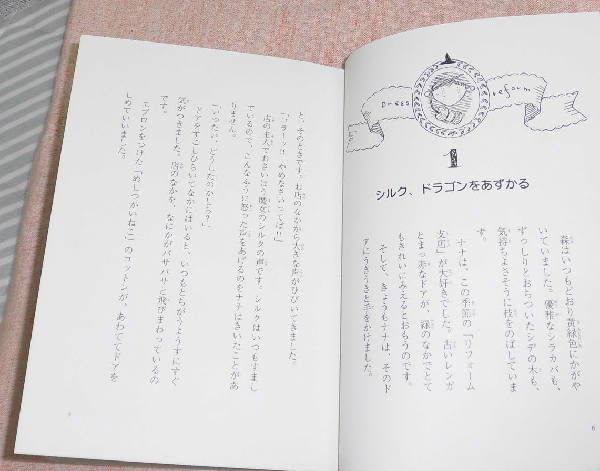 Dress reform
1
シルク、ドラゴンをあずかる
森はいつもどおり黄緑色にかがや
いていました。優雅なシラカバも、
ずっしりとおちついたシデの木も、
気持ちよさそうに枝をのばしていま
す。
ナナは、この季節の「リフォーム
支店」が大好きでした。古いレンガ
とまっ赤なドアが、緑のなかでとて
もきれいにみえるとおもうのです。
そして、きょうもナナは、そのド
アにうきうきと手をかけました。
6
と、そのときです。お店のなかから大きな声がひびいてきました。
「コラーッ!! やめなさいってば!!」
店の主人でおさいほう魔女のシルクの声です。シルクはいつもすまし
ているので、こんなふうに怒った声をあげるのをナナはきいたことがあ
りません。
「いったい、どうしたのかしら?」
ドアをすこしひらいてなかにはいると、いつもとちがうようすにすぐ
気がつきました。店のなかを、なにかがバサバサと飛びまわっているの
です。
エプロンをつけた「めしつかいねこ」のコットンが、あわててドアを
しめていいました。